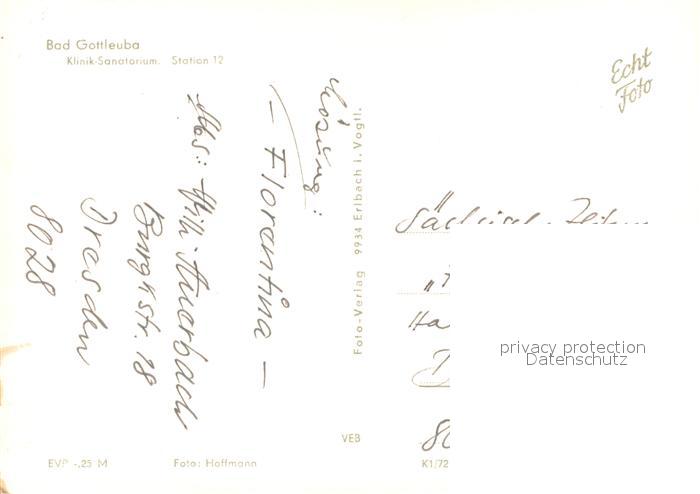 Bad Gottleuba
Klinik-Sanatorium. Station 12
Echt
Foto
Lösung:
— Florentina —
Abs.: Willi Auerbach
Burgkstr. 18
Dresden
8028
Foto-Verlag 9934 Erlbach i. Vogtl.
VEB
"Sächsische Zeitun
Ha
D
80
privacy protection
Datenschutz
EVP -,25 M
Foto: Hoffmann
K1/72